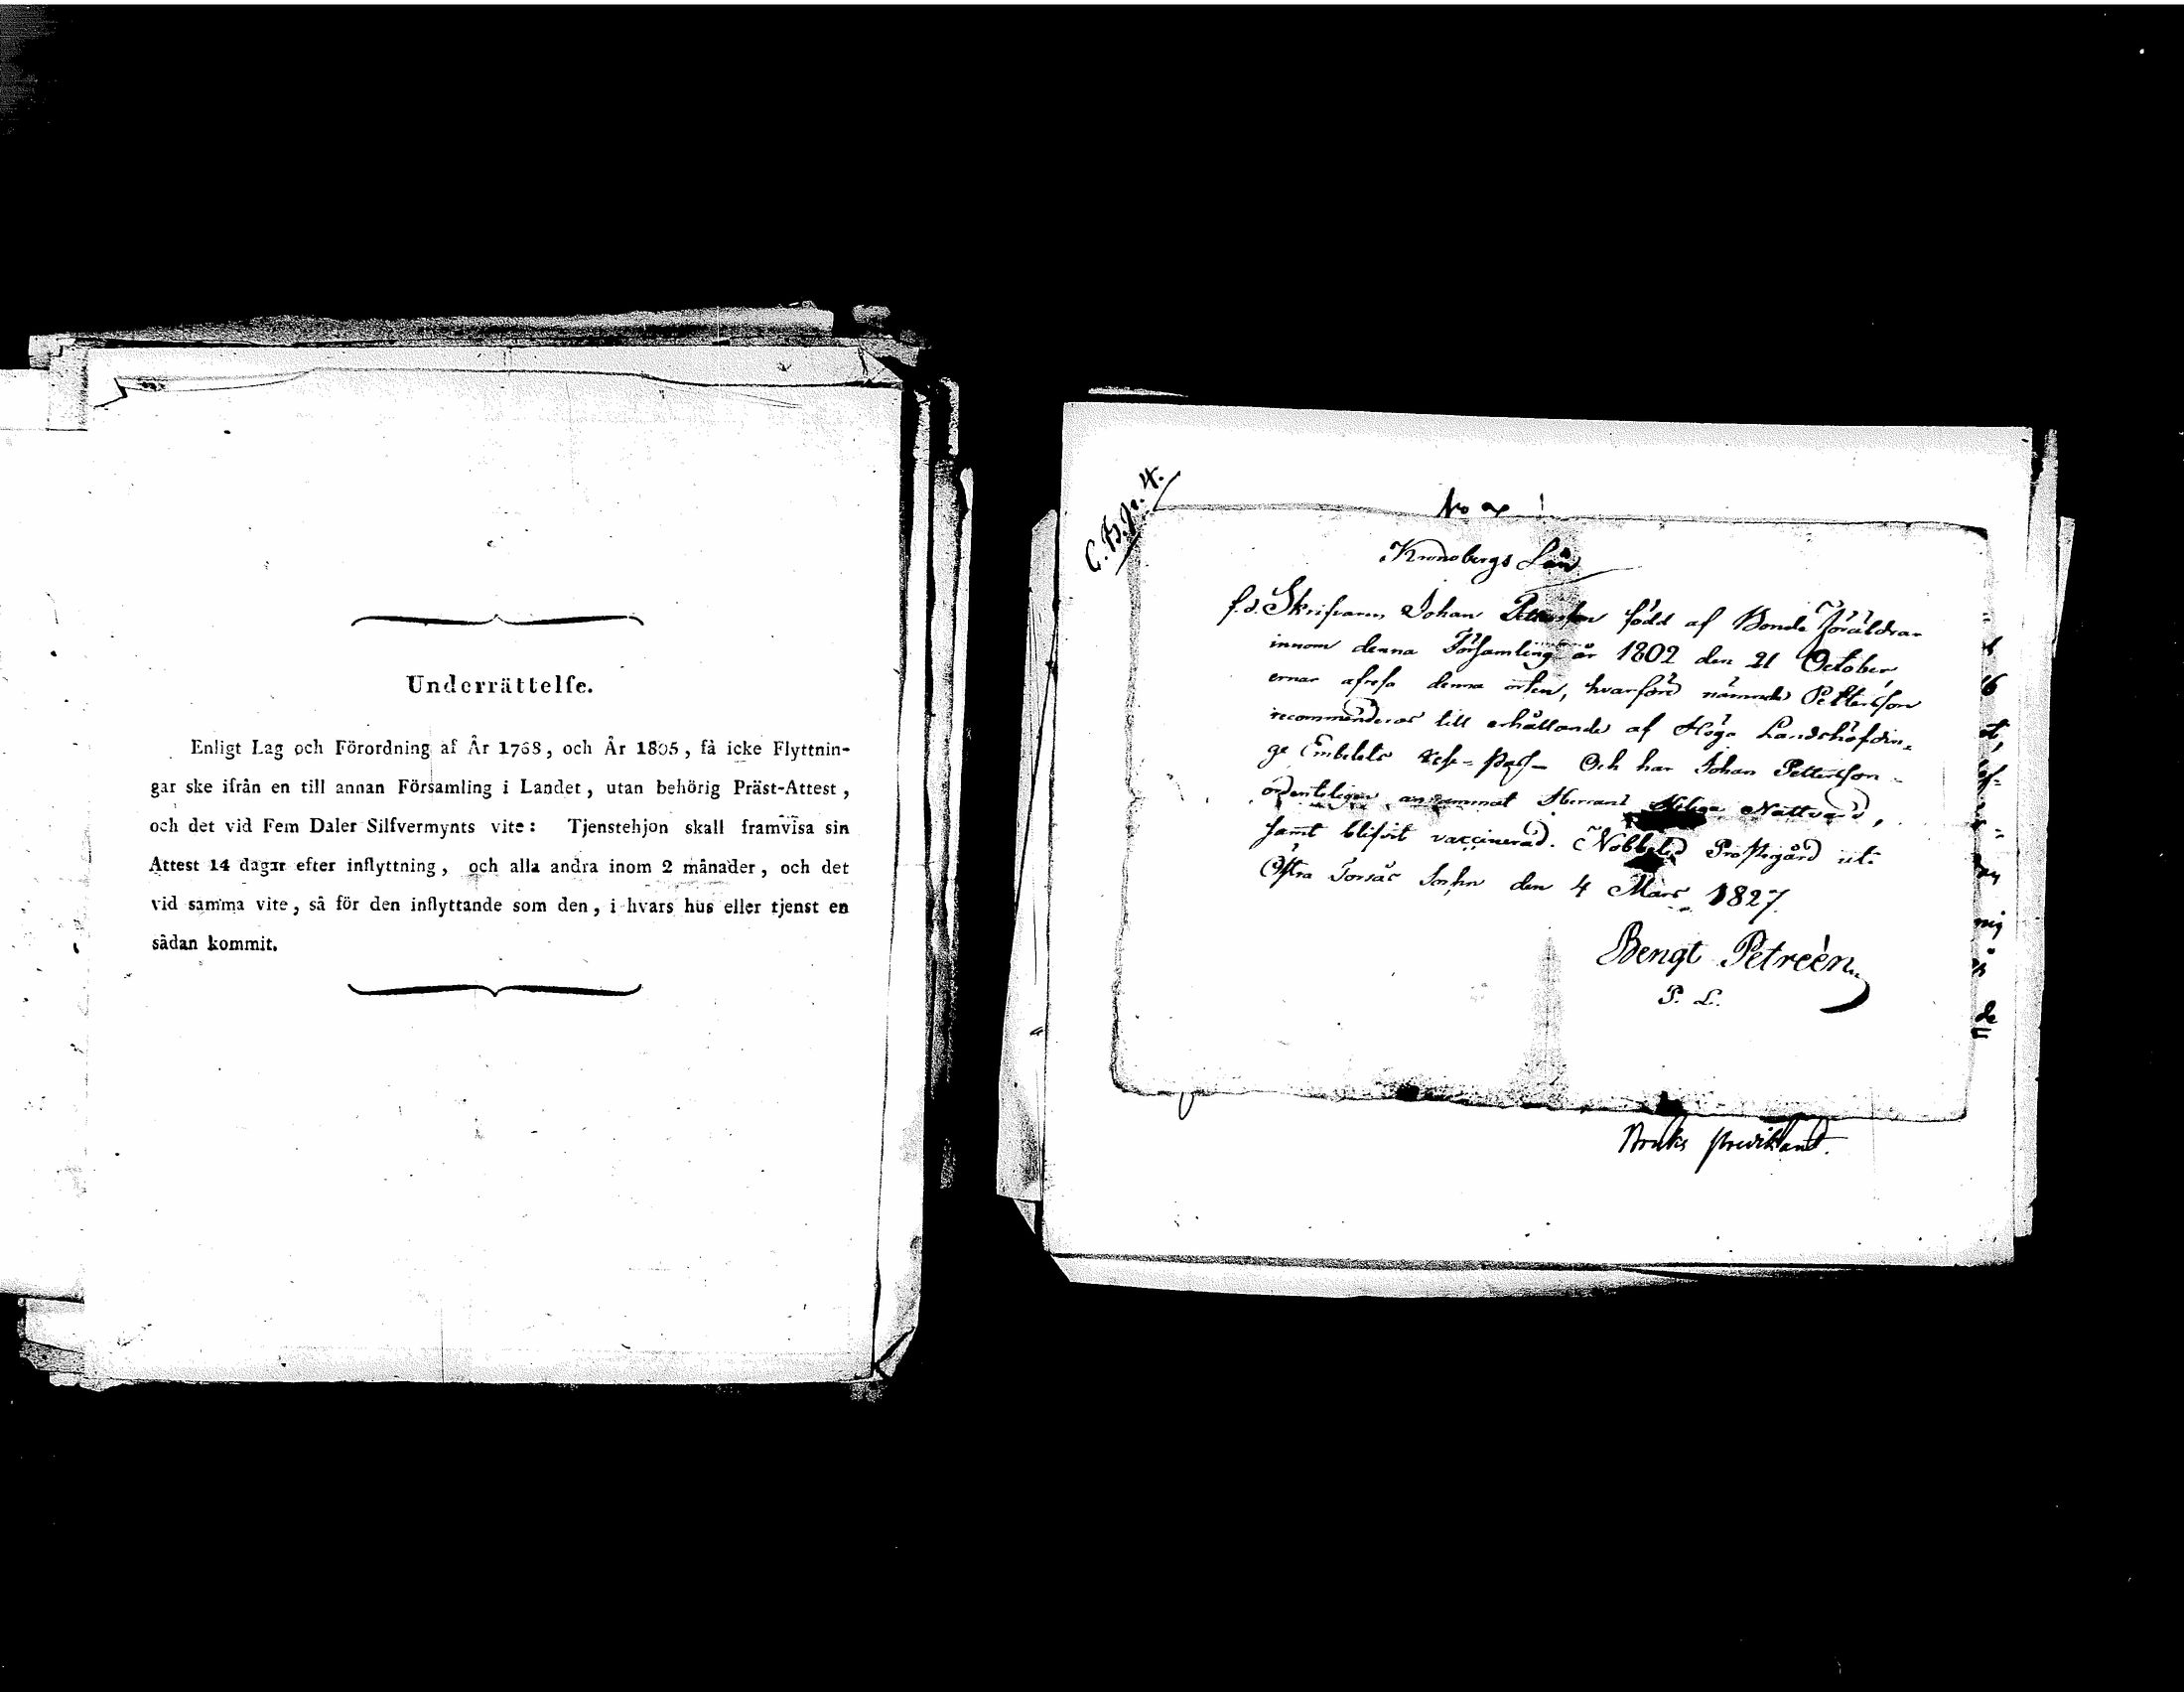 Underrättelse.
Enligt Lag och Förordning af År 1768, och År 1805, få icke Flyttnin-
gar ske ifrån en till annan Församling i Landet, utan behörig Präst-Attest,
och det vid Fem Daler Silfvermynts vite: Tjenstehjon skall framvisa sin
Attest 14 dagar efter inflyttning, och alla andra inom 2 månader, och det
vid samma vite, så för den inflyttande som den, i hvars hus eller tjenst en
sådan kommit.
Kronobergs Län
f.d. Skrifvaren Johan Petterson född af Bonde Föräldrar
innom denna Församling år 1802 den 21 October,
ernar afresa denna orten, hvarföre nämnde Petterson
recommenderas till erhållande af Höga Landshöfdin-
ge Embetets rese-pass- Och har Johan Petterson
ordenteligen anammat Herrans Heliga Nattvard,
samt blifvit vaccinerad. Nobbeled Prostegård uti
Östra Torsås Sochn den 4 Mars 1827.
Bengt Petreén
P. L.
Bruks predikant.